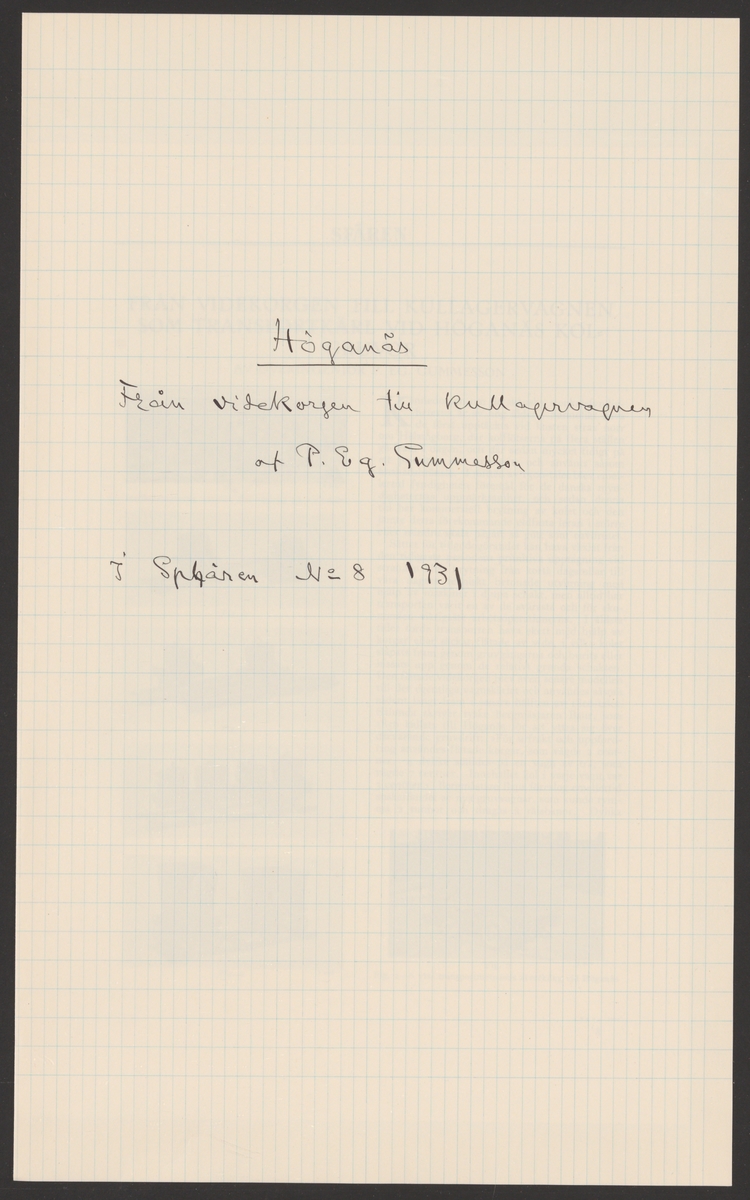 Höganäs
Från videkorgen till kullagervagnen
af P. Eg. Gummesson
i Sphären No 8 1931